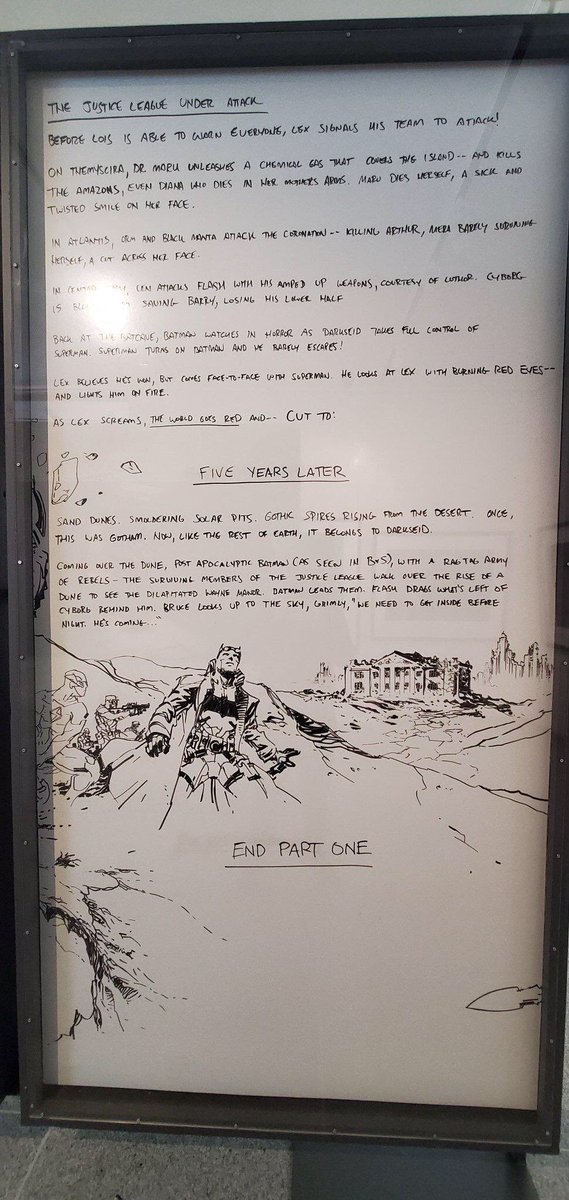 THE JUSTICE LEAGUE UNDER ATTACK
BEFORE LOIS IS ABLE TO WARN EVERYONE, LEX SIGNALS HIS TEAM TO ATTACK!
ON THEMYSCIRA, DR. MARU UNLEASHES A CHEMICAL GAS THAT COVERS THE ISLAND -- AND KILLS
THE AMAZONS, EVEN DIANA WHO DIES IN HER MOTHERS ARMS. MARU DIES HERSELF, A SICK AND
TWISTED SMILE ON HER FACE.
IN ATLANTIS, ORM AND BLACK MANTA ATTACK THE CORONATION -- KILLING ARTHUR, MERA BARELY SURVIVING
HERSELF, A CUT ACROSS HER FACE.
IN CENTRAL LEN ATTACKS FLASH WITH HIS AMPED UP WEAPONS, COURTESY OF LUTHOR. CYBORG
IS SAVING BARRY, LOSING HIS LOWER HALF
BACK AT THE BATCAVE, BATMAN WATCHES IN HORROR AS DARKSEID TAKES FULL CONTROL OF
SUPERMAN. SUPERMAN TURNS ON BATMAN AND HE BARELY ESCAPES!
LEX BELIEVES HE'S WON, BUT COMES FACE-TO-FACE WITH SUPERMAN. HE LOOKS AT LEX WITH BURNING RED EYES --
AND LIGHTS HIM ON FIRE.
AS LEX SCREAMS, THE WORLD GOES RED AND-- CUT TO:
FIVE YEARS LATER
SAND DUNES. SMOLDERING SOLAR PITS. GOTHIC SPIRES RISING FROM THE DESERT. ONCE,
THIS WAS GOTHAM. NOW, LIKE THE REST OF EARTH, IT BELONGS TO DARKSEID.
COMING OVER THE DUNE, POST APOCALYPTIC BATMAN (AS SEEN IN BvS), WITH A RAGTAG ARMY
OF REBELS - THE SURVIVING MEMBERS OF THE JUSTICE LEAGUE WALK OVER THE RISE OF A
DUNE TO SEE THE DILAPITATED WAYNE MANOR. BATMAN LEADS THEM. FLASH DRAGS WHAT'S LEFT OF
CYBORG BEHIND HIM. BRUCE LOOKS UP TO THE SKY, GRIMLY, "WE NEED TO GET INSIDE BEFORE
NIGHT. HE'S COMING..."
END PART ONE